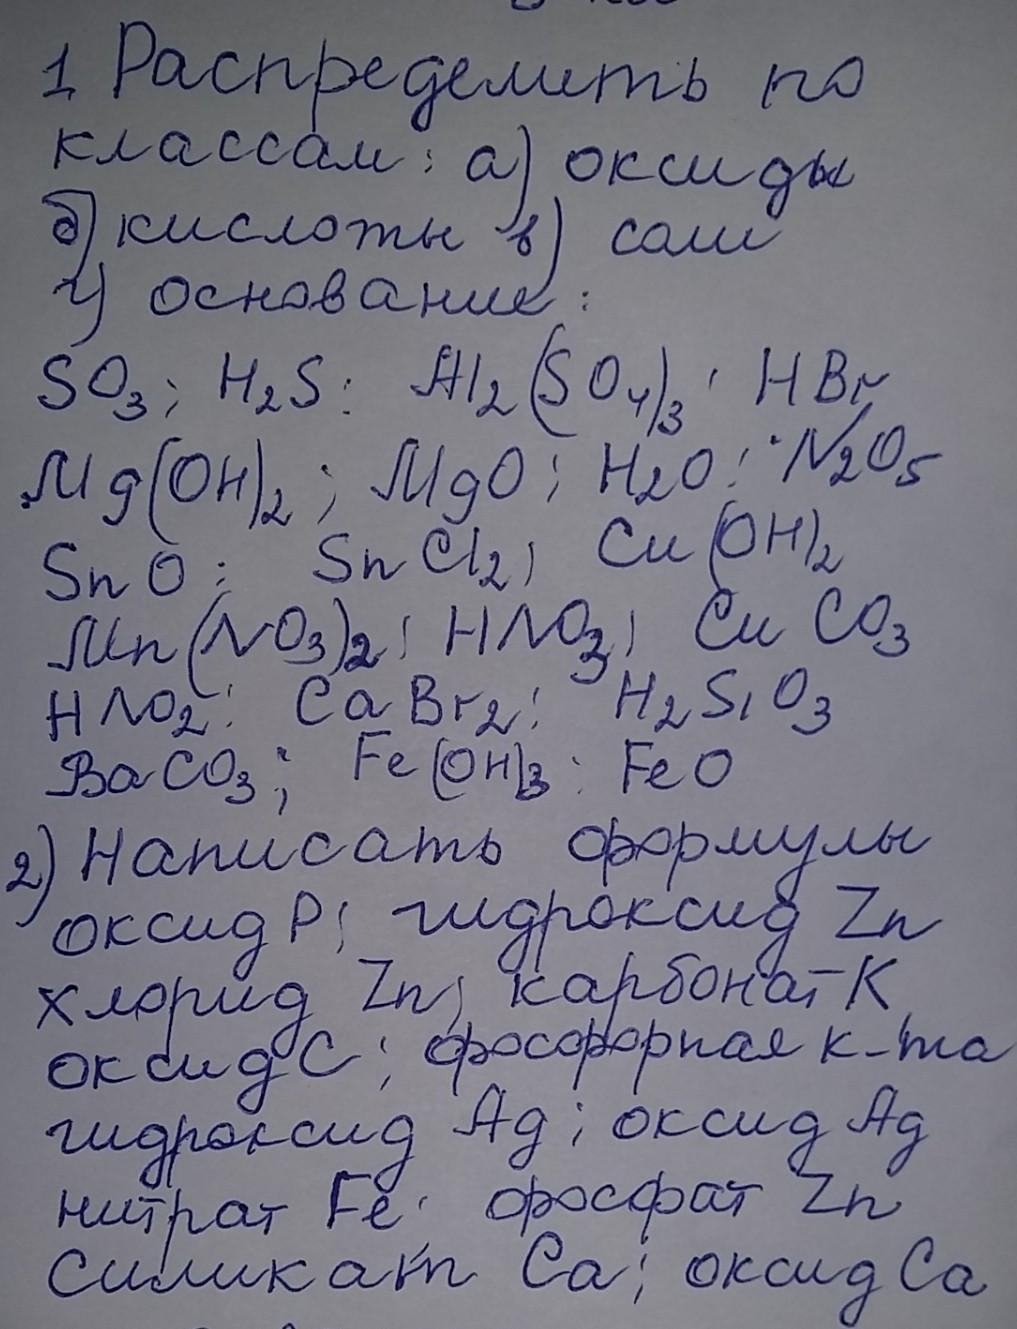 1. Распределить по
классам: а) оксиды
б) кислоты в) соли
г) основание:
SO3; H2S; Al2(SO4)3; HBr
Mg(OH)2; MgO; H2O; N2O5
SnO; SnCl2; Cu(OH)2
Mn(NO3)2; HNO3; CuCO3
HNO2; CaBr2; H2SiO3
BaCO3; Fe(OH)3; FeO
2) Написать формулы
оксид P; гидроксид Zn
хлорид Zn; карбонат K,
оксид C; фосфорная к-та
гидроксид Ag; оксид Ag
нитрат Fe; фосфат Zn
силикат Ca; оксид Ca